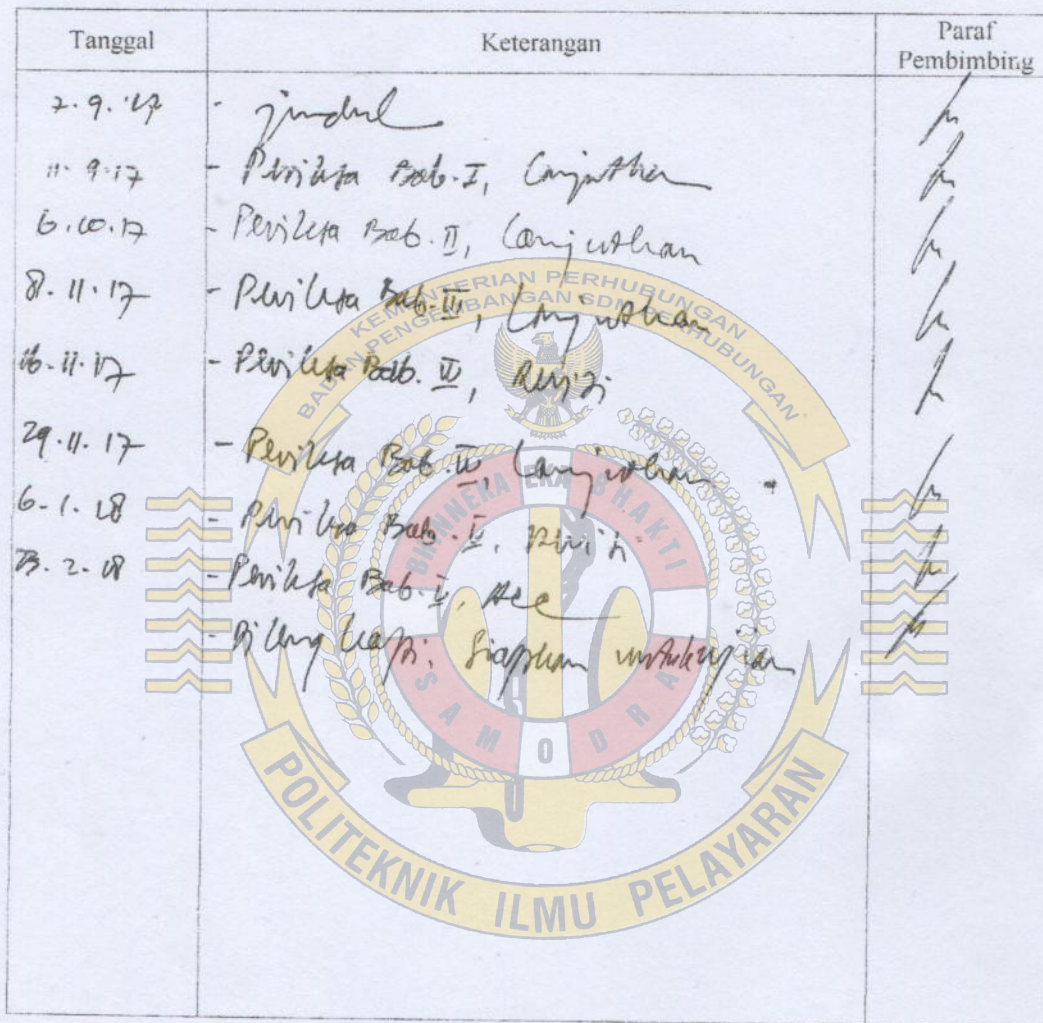 Tanggal Keterangan Paraf Pembimbing
7.9.17 - judul
11.9.17 - Periksa Bab.I, Lanjutkan
6.10.17 - Periksa Bab.II, Lanjutkan
8.11.17 - Periksa Bab.III, Lanjutkan
16.11.17 - Periksa Bab.IV, Revisi
29.11.17 - Periksa Bab.IV, Lanjutkan
6-1.18 - Periksa Bab.V, Revisi
23.2.18 - Periksa Bab.V, Acc
- Dilengkapi, Siapkan untuk ujian
KEMENTERIAN PERHUBUNGAN
BADAN PENGEMBANGAN SDM PERHUBUNGAN
BHINNEKA EKA BHAKTI
SAMODRA
POLITEKNIK ILMU PELAYARAN